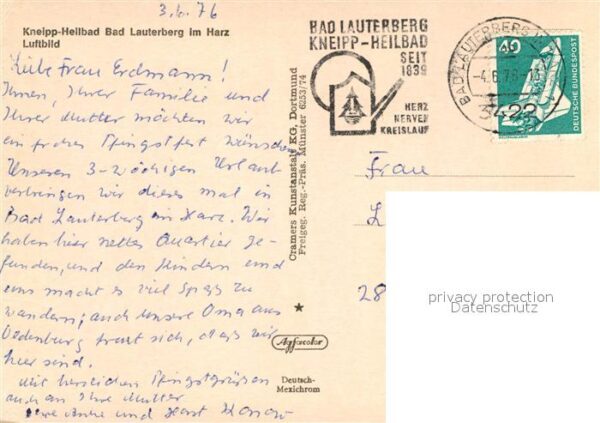 3.6.76
Kneipp-Heilbad Bad Lauterberg im Harz
Luftbild
Liebe Frau Erdmann!
Ihnen, Ihrer Familie und
Ihrer Mutter möchten wir
ein frohes Pfingstfest wünschen.
Unseren 3-wöchigen Urlaub
verbringen wir dieses mal in
Bad Lauterberg im Harz. Wir
haben hier nettes Quartier ge-
funden, und den Kindern und
uns macht es viel Spaß zu
wandern; auch unsere Oma aus
Oldenburg freut sich, dass wir
hier sind.
Mit herzlichen Pfingstgrüßen
auch an Ihre Mutter
und Horst
Cramers Kunstanstalt KG, Dortmund
Freigeg. Reg.-Präs. Münster 6253/74
Agfacolor
Deutsch-
Mexichrom
BAD LAUTERBERG
KNEIPP-HEILBAD
SEIT
1839
HERZ
NERVEN
KREISLAUF
BAD LAUTERBERG
-4.6.76
3422
40
DEUTSCHE BUNDESPOST
Frau
L
28
privacy protection
Datenschutz